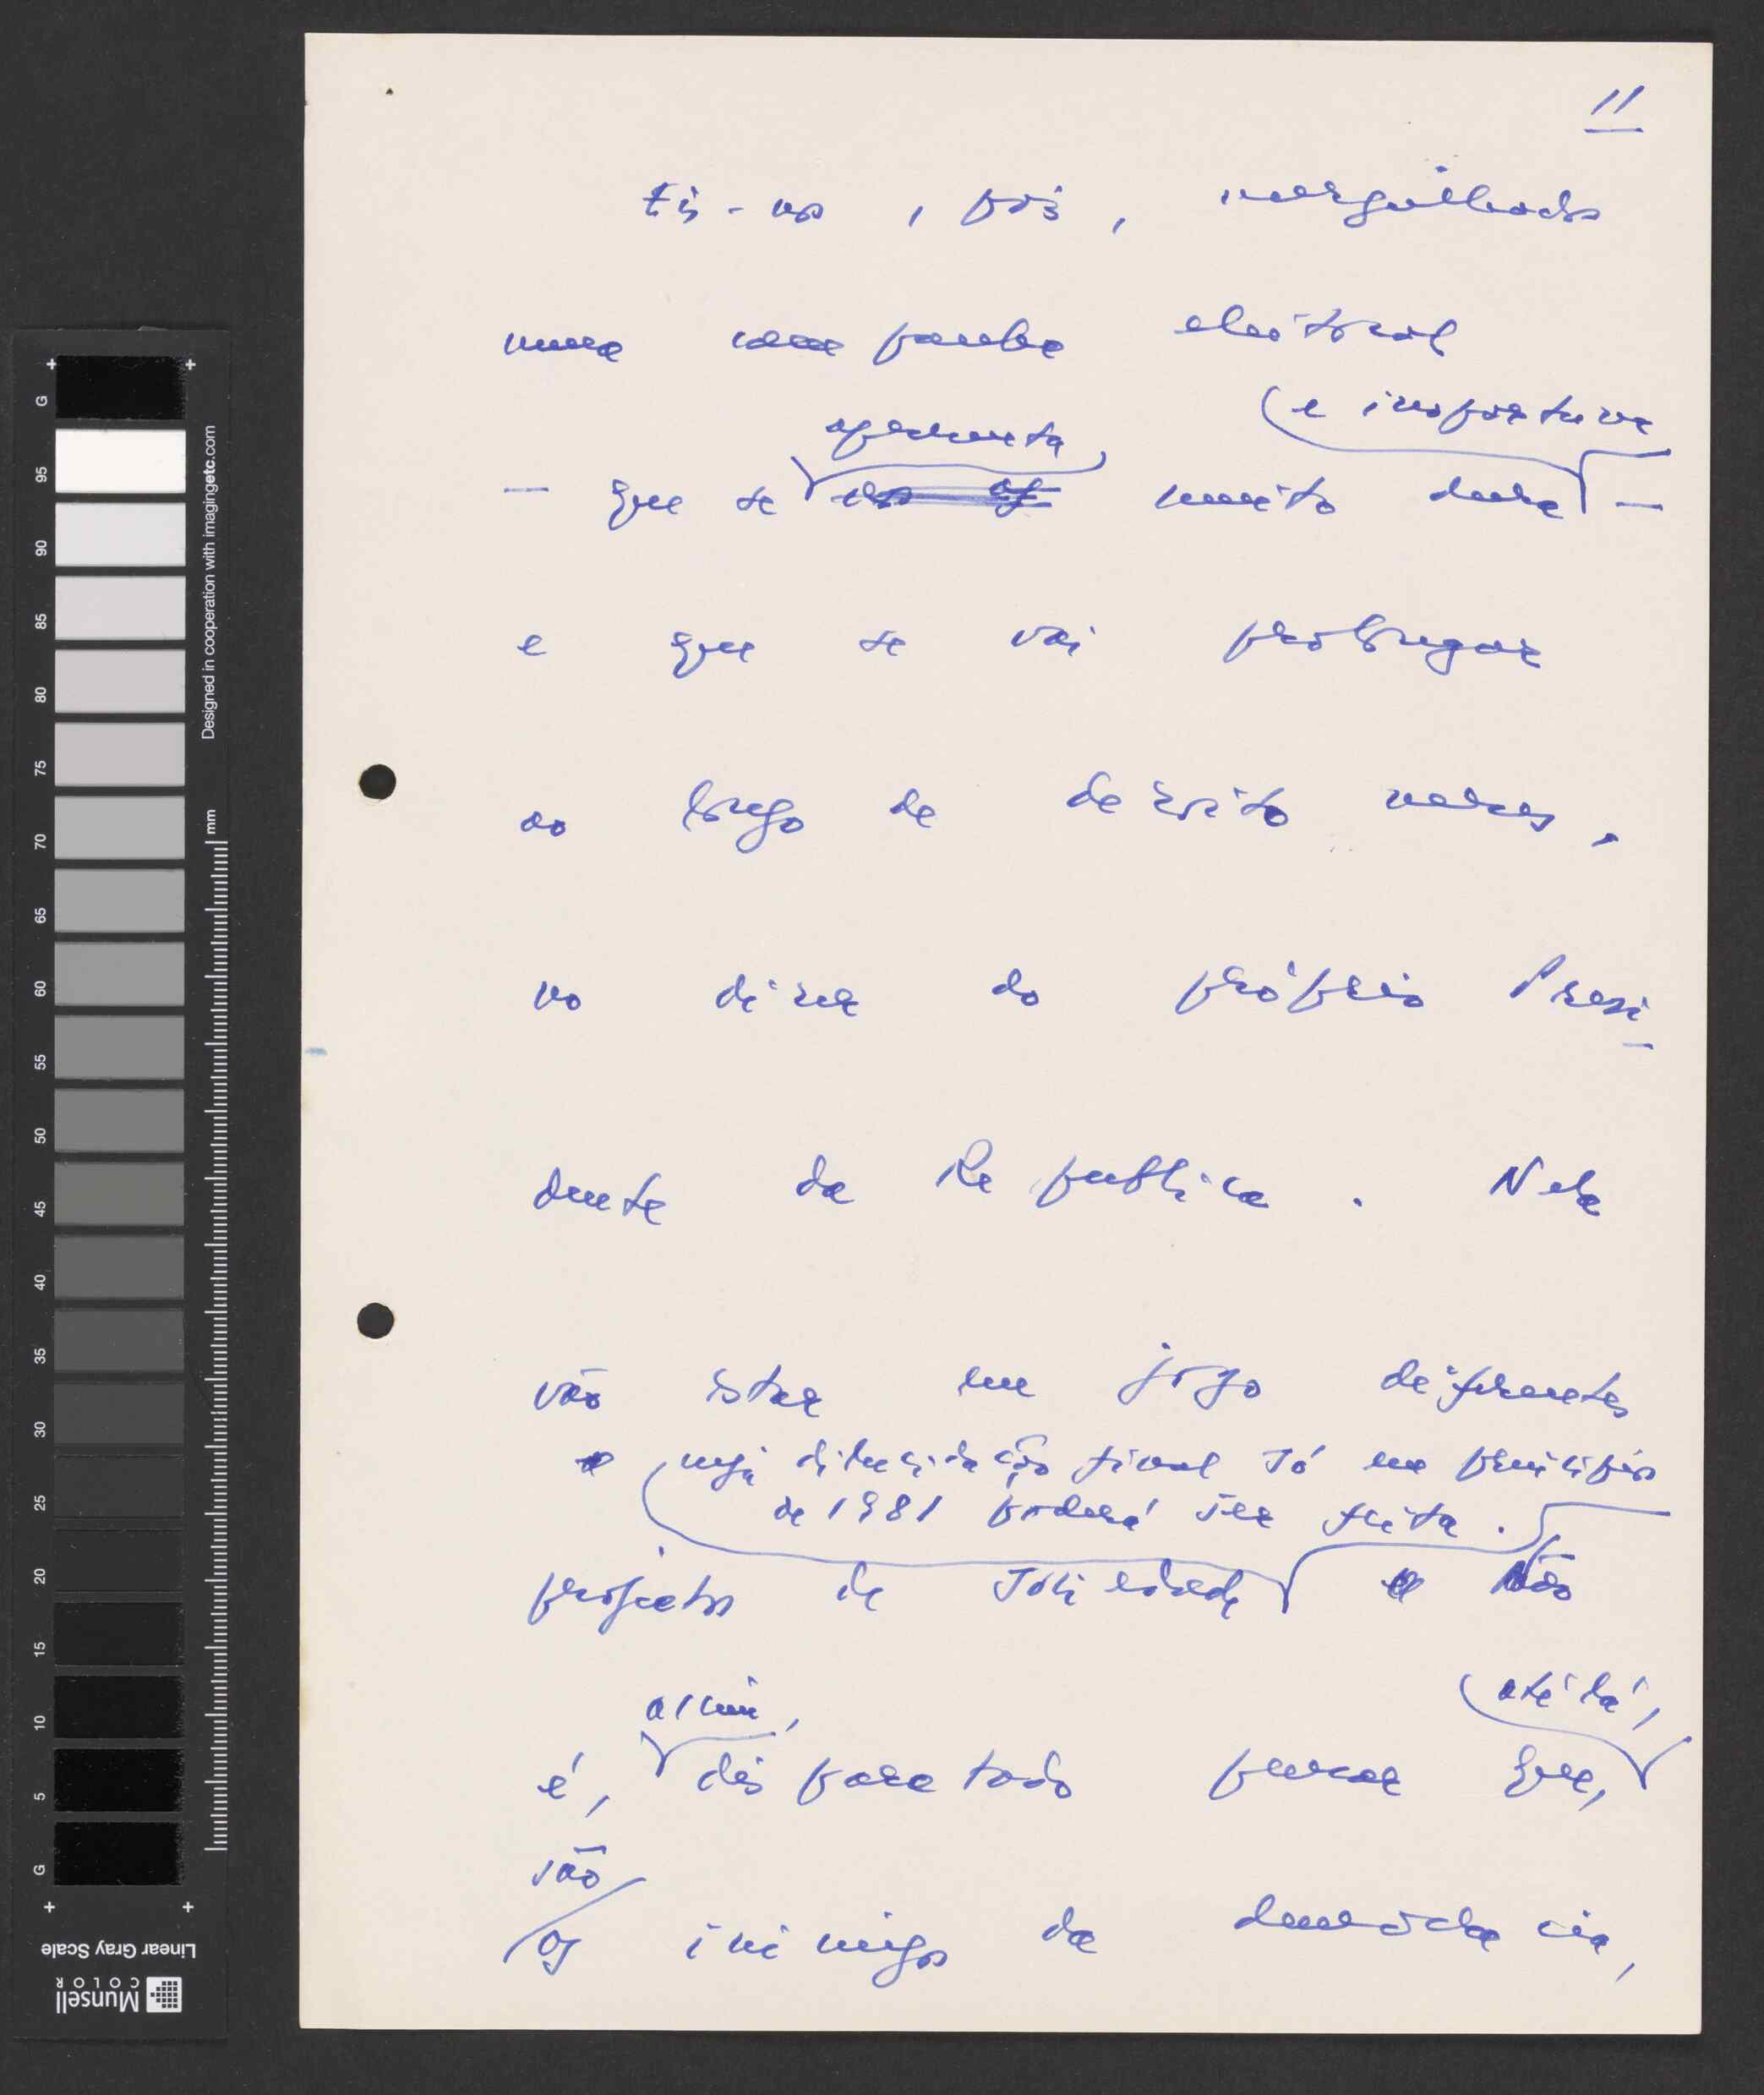 11
Eis-nos, pois, mergulhados
numa campanha eleitoral
apresenta e inoportuna
— que se muito dura —
e que se vai prolongar
ao longo de dezoito meses,
no dizer do próprio Presi-
dente da Republica. Nela
vão estar em jogo diferentes
cuja dilucidação final só em princípios
de 1981 poderá ser feita.
projectos de sociedade Não
assim, até lá,
é, disparatado pensar que,
são
os inimigos da democracia,
G
95
90
85
80
75
70
65
60
55
50
45
40
35
30
25
20
15
10
5
G
mm
Designed in cooperation with imagingetc.com
Linear Gray Scale
Munsell
COLOR